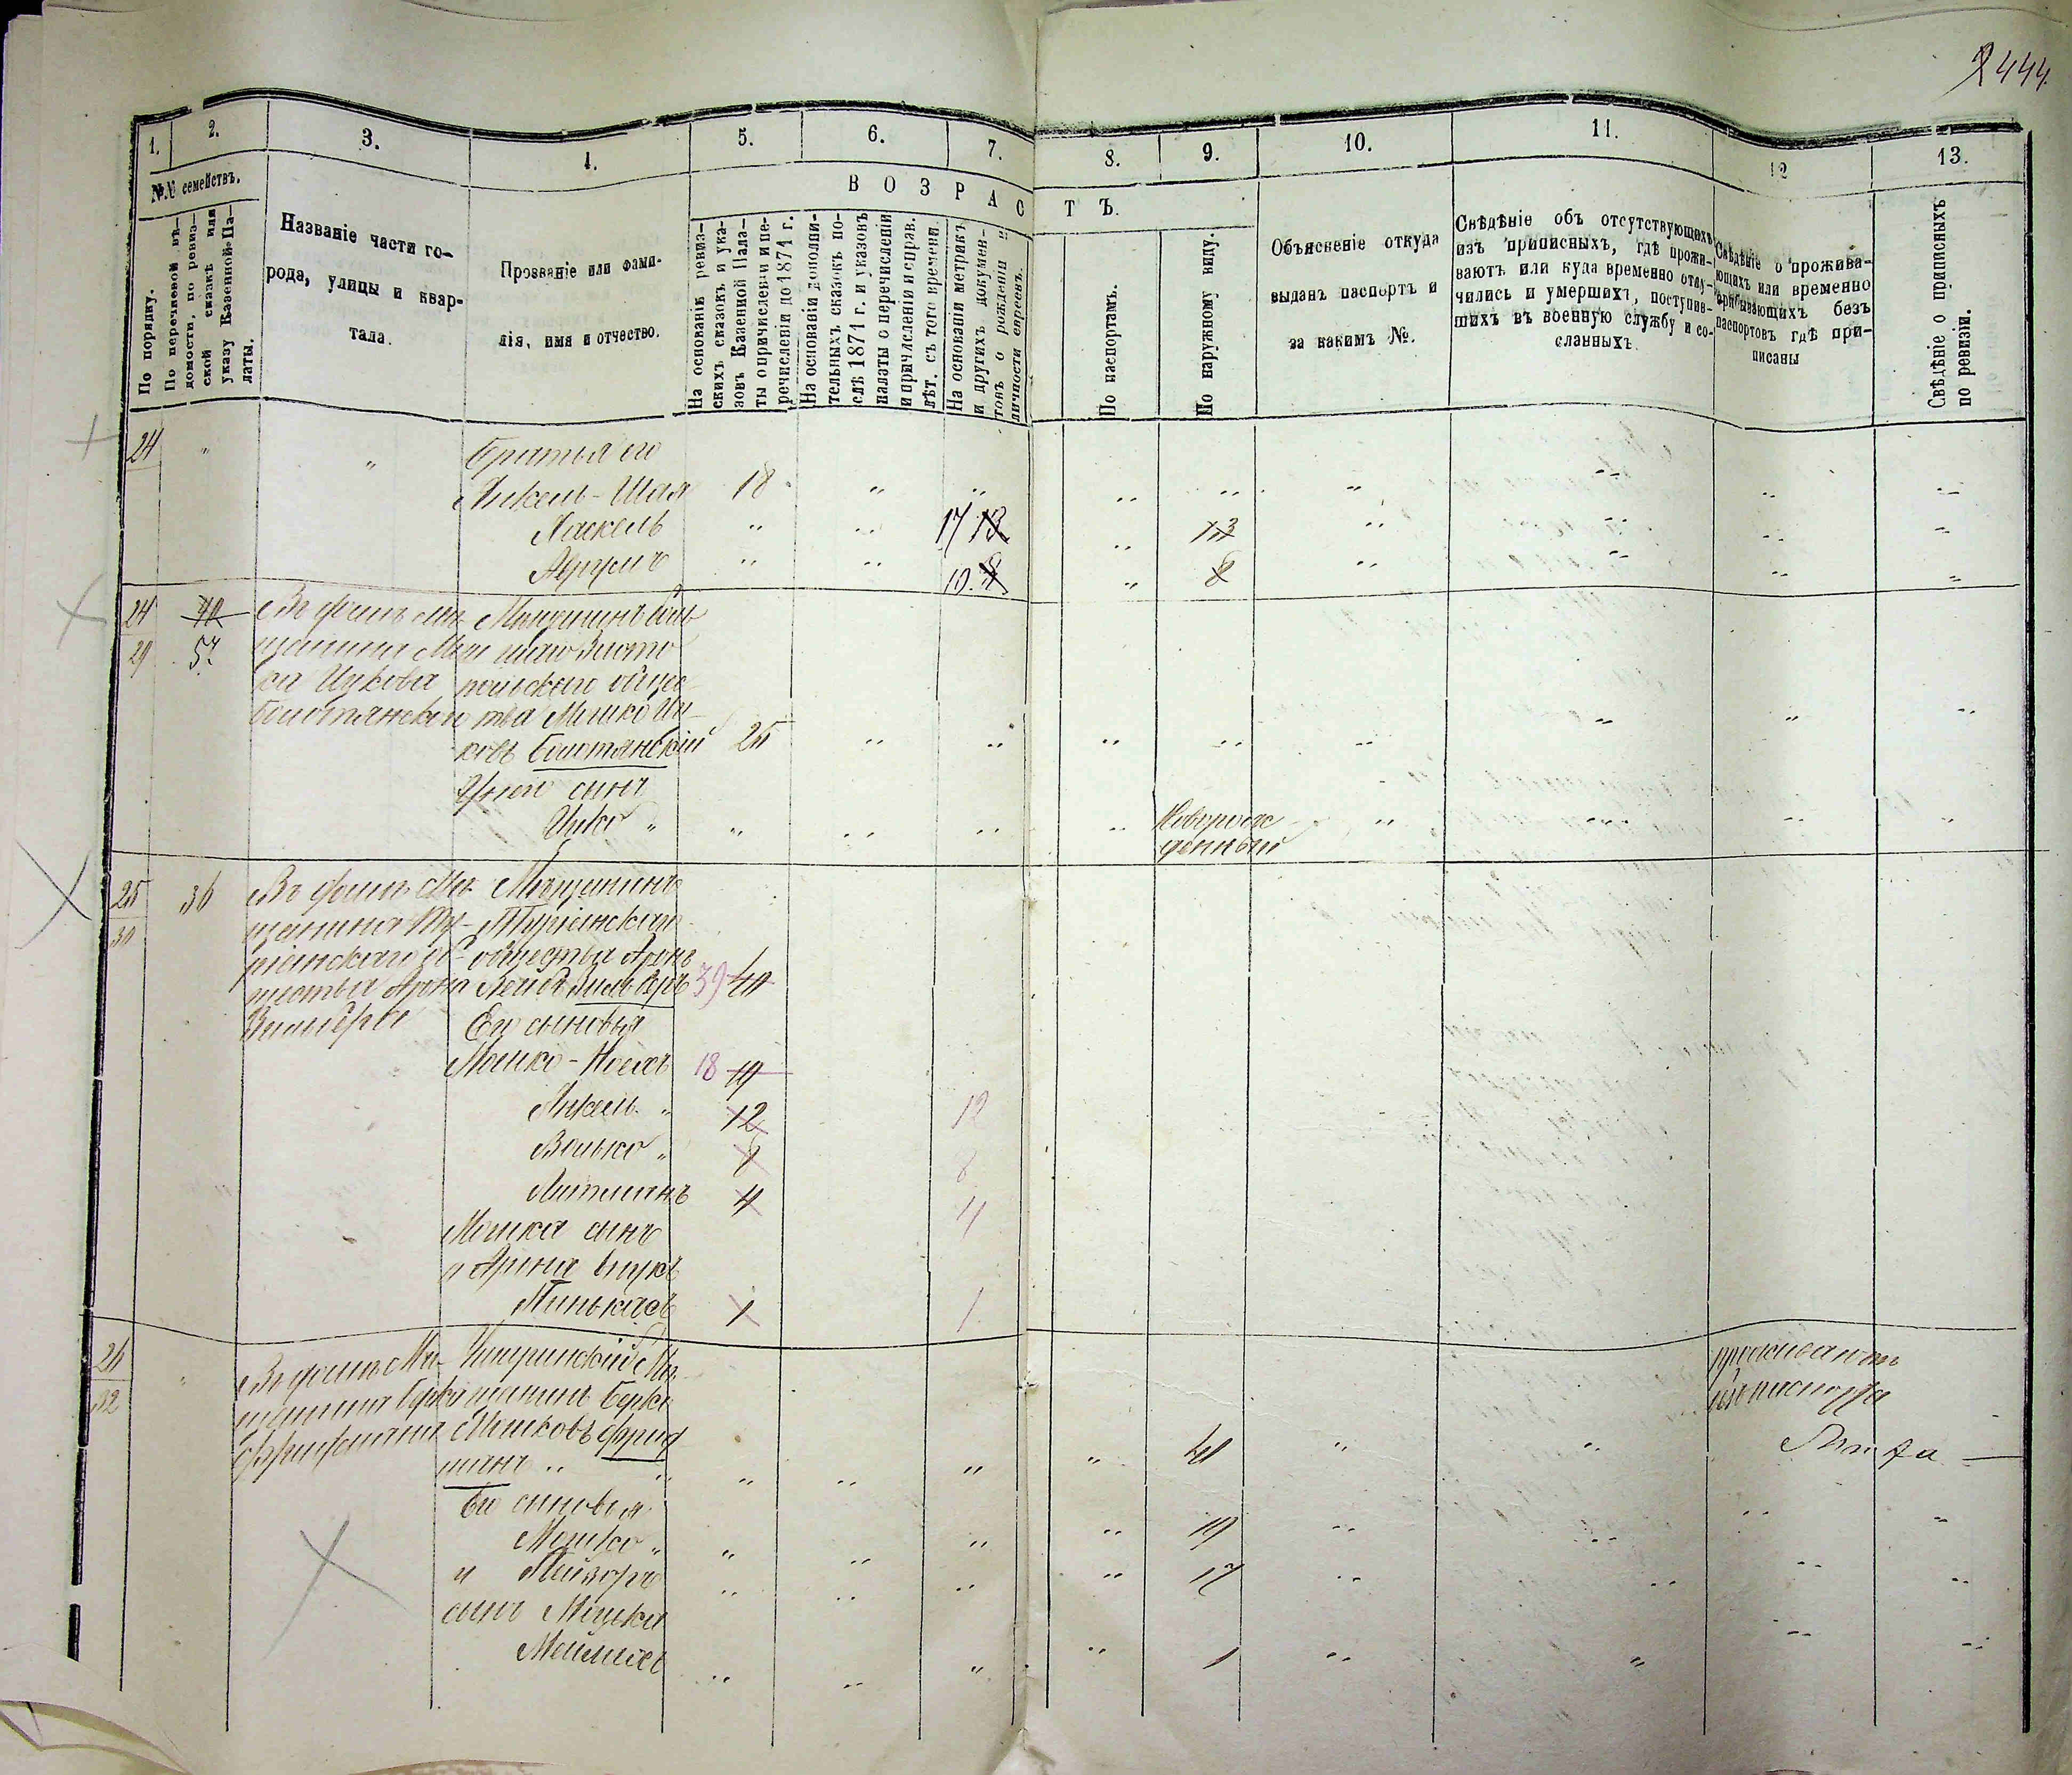 2444.
1. 2. 3. 4. 5. 6. 7. 8. 9. 10. 11. 12 13.
№№ семействъ.
В О З Р А С Т Ъ.
По порядку.
По перечневой вѣ-
домости, по ревиз-
ской сказкѣ или
указу Казенной Па-
латы.
Названіе части го-
рода, улицы и квар-
тала.
Прозваніе или фами-
лія, имя и отчество.
На основаніи ревиз-
скихъ сказокъ и ука-
зовъ Казенной Пала-
ты о причисленіи и пе-
речисленіи до 1871 г.
На основаніи дополни-
тельныхъ сказокъ по-
слѣ 1871 г. и указовъ
палаты о перечисленіи
и причисленіи и справ.
лѣт. съ того времени.
На основаніи метрикъ
и другихъ докумен-
товъ о рожденіи и
личности евреевъ.
По паспортамъ.
По наружному виду.
Объясненіе откуда
выданъ паспортъ и
за какимъ №.
Свѣдѣніе объ отсутствующихъ
изъ приписныхъ, гдѣ прожи-
ваютъ или куда временно отлу-
чились и умершихъ, поступив-
шихъ въ военную службу и со-
сланныхъ.
Свѣдѣніе о прожива-
ющихъ или временно
пребывающихъ безъ
паспортовъ гдѣ при-
писаны
Свѣдѣніе о приписныхъ
по ревизіи.
24 " " Братья его
Янкель-Шая 18
Хаскель 17 13 13
Аврумъ 10. 8 8
24 40 Въ домѣ Мѣ-
29 57. щанина Мош
ка Ицкова
Болотянскаго
Мѣщанинъ
польскаго общес
тва Мошко Иц-
ковъ Болотянскій 25
У него сынъ
Ицко " Новорож
денный
25 36 Въ домѣ Мѣ-
щанина Ту-
ріянскаго об-
щества Арона
Зильбера
Мѣщанинъ
Туріянскаго
общества Аронъ
Лейба Зильберъ 39 40
Его сыновья
Мошко-Іосель 18 19
Янкель " 12 12
Волько " 8 8
Литманъ 4 4
Мошка сынъ
и Арона внукъ
Пинькасъ 1 1
26 " Въ домѣ Мѣ-
32 щанина Берка
Фридмана
Чигиринскій Мѣ-
щанинъ Берко
Мошковъ Фрид
манъ " 40
проживаютъ
безъ паспорта
Его сыновья
Мошко " 19
и Лейзоръ 17
сынъ Мошка
Мейлихъ 1